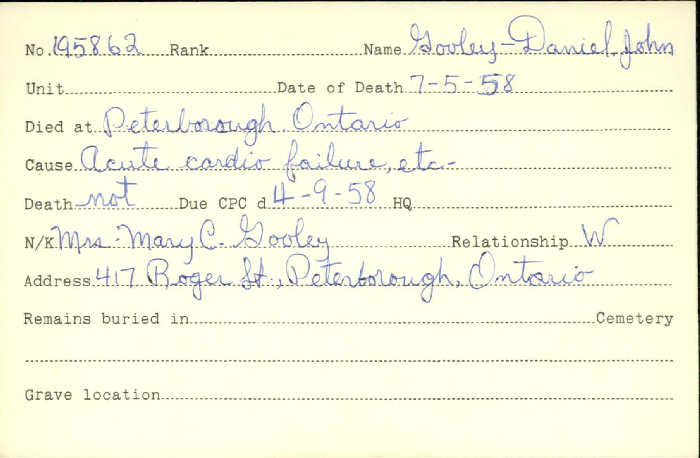 No. 195862 Rank Name Gooley - Daniel John
Unit Date of Death 7-5-58
Died at Peterborough Ontario
Cause Acute cardio failure, etc-
Death not Due CPC d 4-9-58 HQ
N/K Mrs. Mary C. Gooley Relationship W
Address 417 Roger St., Peterborough, Ontario
Remains buried in Cemetery
Grave location